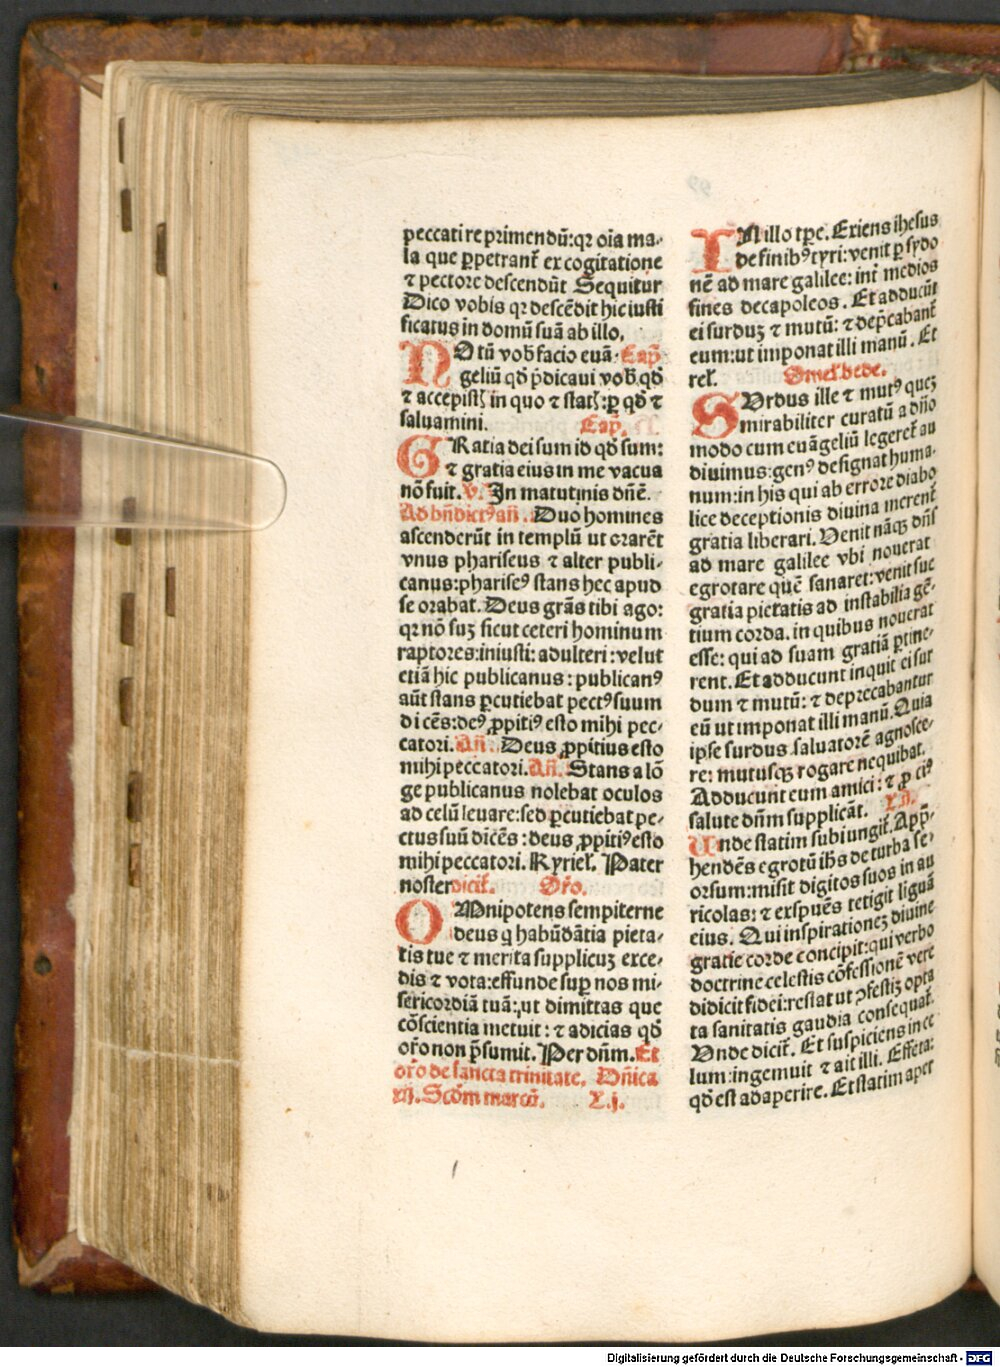 peccati reprimendū: qꝛ oīa ma-
la que ꝑpetrant̄ ex cogitatione
⁊ pectore descendūt Sequitur
Dico vobis qꝛ descēdit hic iusti
ficatus in domū suā ab illo.
NOtū vob̄ facio euā- Cap̄
geliū qd̄ p̄dicaui vob̄. qd̄
⁊ accepistꝭ in quo ⁊ statꝭ: ꝑ qd̄ ⁊
saluamini. Cap̄.
GRatia dei sum id qd̄ sum:
⁊ gratia eius in me vacua
nō fuit. v. In matutinis dn̄e.
Ad bn̄dictꝰ an̄. Duo homines
ascenderūt in templū ut orarēt
vnus phariseus ⁊ alter publi-
canus: phariseꝰ stans hec apud
se orabat. Deus gr̄as tibi ago:
qꝛ nō suꝫ sicut ceteri hominum
raptores: iniusti: adulteri: velut
etiā hic publicanus: publicanꝰ
aūt stans ꝑcutiebat pectꝰ suum
dicēs: deꝰ ꝓpitiꝰ esto mihi pec-
catori. An̄. Deus ꝓpitius esto
mihi peccatori. An̄. Stans a lō
ge publicanus nolebat oculos
ad celū leuare: sed ꝑcutiebat pe-
ctus suū dicēs: deus ꝓpitiꝰ esto
mihi peccatori. Kyriel̄. Pater
noster dicit̄. Or̄o.
OMnipotens sempiterne
deus q̄ habūdātia pieta-
tis tue ⁊ merita supplicuꝫ exce-
dis ⁊ vota: effunde suꝑ nos mi-
sericordiā tuā: ut dimittas que
cōscientia metuit: ⁊ adicias qd̄
or̄o non p̄sumit. Per dn̄m. Et
or̄o de sancta trinitate. Dn̄ica
xij. Scd̄m marcū. L.j.
IN illo tp̄e. Exiens ihesus
de finibꝰ tyri: venit ꝑ sydo
nē ad mare galilee: int̄ medios
fines decapoleos. Et adducūt
ei surduꝫ ⁊ mutū: ⁊ dep̄cabant̄
eum: ut imponat illi manū. Et
rel̄. Omel̄. bede.
SUrdus ille ⁊ mutꝰ queꝫ
mirabiliter curatū a dn̄o
modo cum euāgeliū legeret̄ au
diuimus: genꝰ designat huma-
num: in his qui ab errore diabo
lice deceptionis diuina merent̄
gratia liberari. Venit nāqꝫ dn̄s
ad mare galilee vbi nouerat
egrotare quē sanaret: venit sue
gratia pietatis ad instabilia gē-
tium corda. in quibus nouerat
esse: qui ad suam gratiā ꝑtine-
rent. Et adducunt inquit ei sur
dum ⁊ mutū: ⁊ deprecabantur
eū ut imponat illi manū. Quia
ipse surdus saluatorē agnosce-
re: mutusqꝫ rogare nequibat.
Adducunt eum amici: ⁊ ꝓ eiꝰ
salute dn̄m supplicāt. L.ij.
Unde statim subiungit̄. App̄-
hendēs egrotū ih̄s de turba se-
orsum: misit digitos suos in au
ricolas: ⁊ exspuēs tetigit liguā
eius. Qui inspirationeꝫ diuine
gratie corde concipit: qui verbo
doctrine celestis cōfessionē vere
didicit fidei: restat ut ꝯfestiꝫ opta
ta sanitatis gaudia consequat̄.
Vnde dicit̄. Et suspiciens in ce
lum: ingemuit ⁊ ait illi. Effeta:
qd̄ est adaperire. Et statim apert
Digitalisierung gefördert durch die Deutsche Forschungsgemeinschaft - DFG